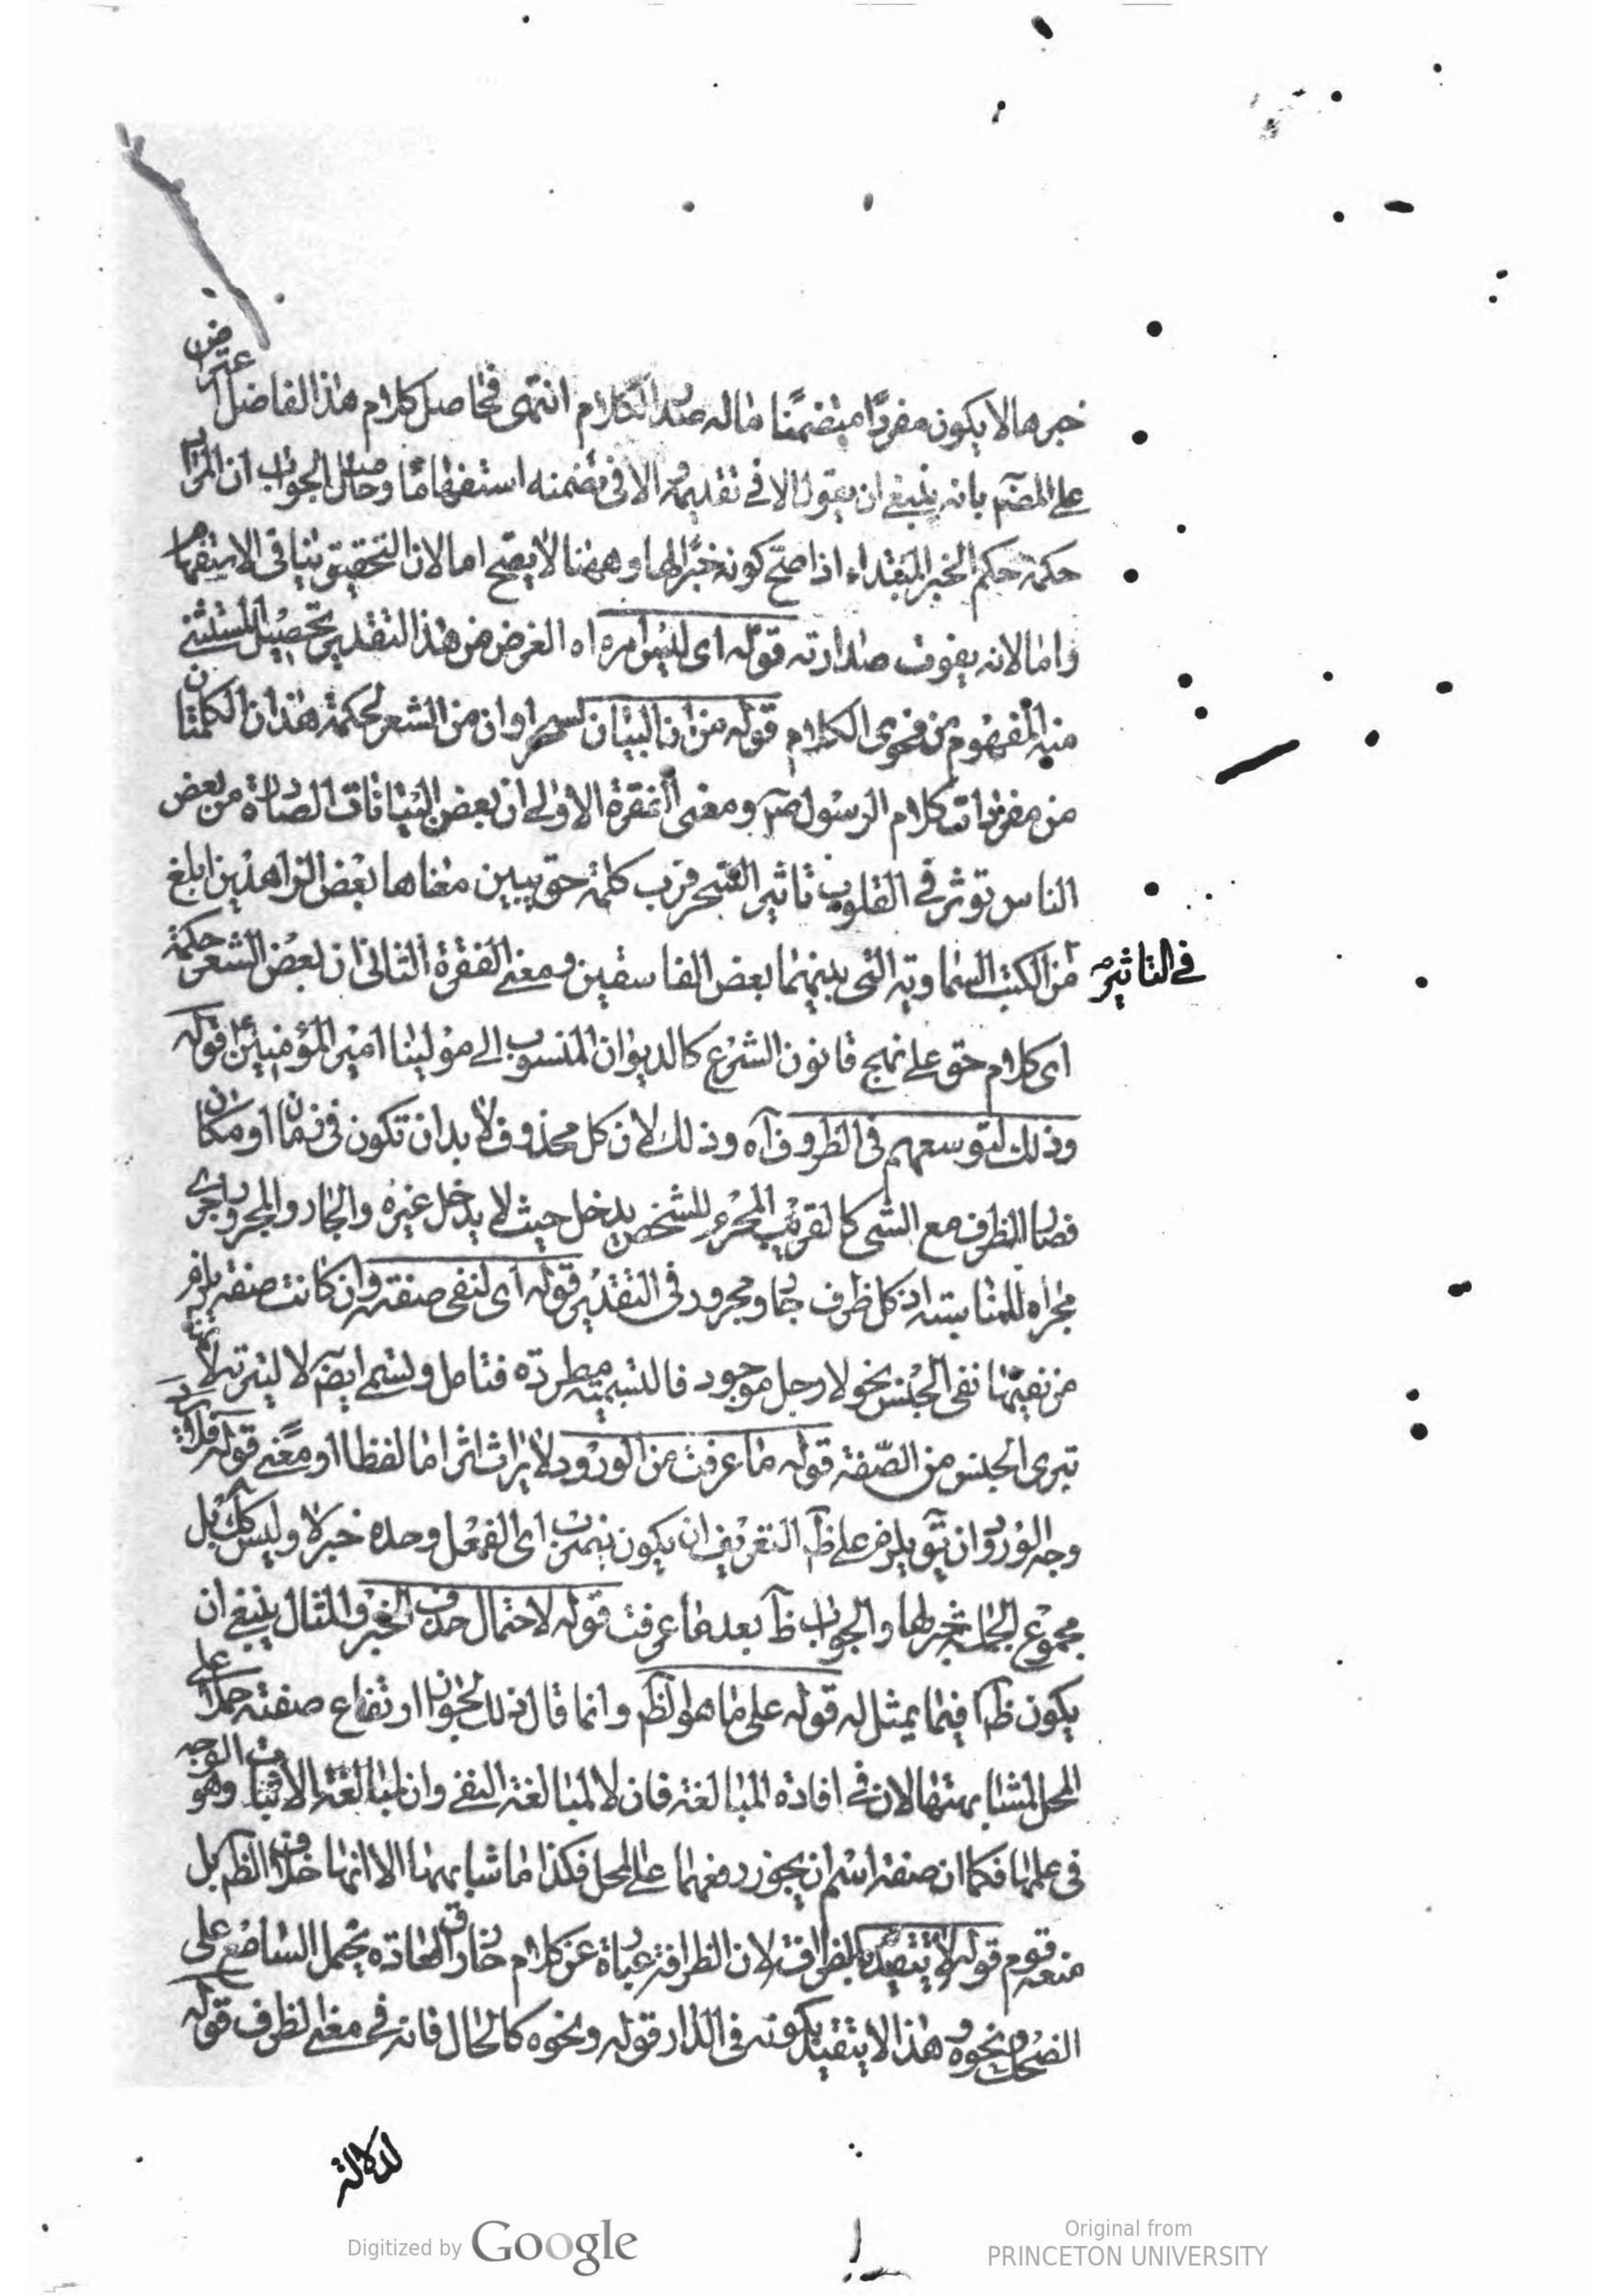 خبرها لا يكون مفردًا متضمنًا ماله صدر الكلام انتهى فحاصل كلام هذا الفاضل اعترض
على المصنم بانه ينبغى ان يقول الا فى تقديمه الا فى تضمنه استفهامًا وحاصل الجواب ان المراد
حكمه حكم الخبر المبتداء اذا صح كونه خبرًا لها وههنا لا يصح اما لان التحقيق ينافى الاستفهام
واما لانه يفوت صدارته قوله اى ليس امره اه الغرض من هذا التقدير تحصيل المستثنى
منه المفهوم من فحوى الكلام قوله من ان البيان لسحرا وان من الشعر لحكمة هذان الكلمتان
من مفردات كلام الرسول صم ومعنى الفقرة الاولى ان بعض البيانات الصادرة من بعض
الناس تؤثر فى القلوب تاثير السحر فرب كلمة حق يبين معناها بعض الزاهدين ابلغ
فى التاثير
من الكتب السماوية التى يبينها بعض الفاسقين ومعنى الفقرة الثانى ان بعض الشعر حكمة
اى كلام حق على نهج قانون الشرع كالديوان المنسوب الى مولينا امير المؤمنين ع قوله
وذلك لتوسعهم فى الظروف آه وذلك لان كل محذوف لا بد ان تكون فى زمان او مكان
فصار الظرف مع الشى كالقريب المحرم للشخص يدخل حيث لا يدخل غيره والجار والمجرور اجرى
مجراه للمناسبته اذ كل ظرف جار ومجرور فى التقدير قوله اى لنفى صفته وان كانت صفته يلزم
من نفيها نفى الجنس نحو لا رجل موجود فالتسمية مطردة فتامل ولتسمى ايضم لا لتبرئة لانه
تبرى الجنس من الصفة قوله ما عرفت من الورود لا يراث اثر اما لفظا او معنى قوله
وجه الورود ان تق يلزم على ظ التعريف ان يكون يضرب اى الفعل وحده خبر لا وليس كك بل
مجموع الجملة خبر لها والجواب ظ بعد ما عرفت قوله لاحتمال حذف الخبر والمثال ينبغى ان
يكون ظ فيما يمثل له قوله على ما هو الظ وانما قال ذلك لجواز ارتفاع صفته حملا على
المحل لمشابهتها لان فى افادة المبالغة فان لا لمبالغة النفى وان لمبالغة الاثبات وهو الوجه
فى عملها فكما ان صفة اسم ان يجوز رفعها على المحل فكذا ما شابهها الا انها خلاف الظ بل
منعه قوم قوله لا يتقيد بالظرافة لان الظرافة عبارة عن كلام خارق العادة يحمل السامع على
الضحك ونحوه وهذا لا يتقيد بكونه فى الدار قوله ونحوه كالحال فانه فى معنى الظرف قوله
لدلالة
Digitized by Google
Original from
PRINCETON UNIVERSITY